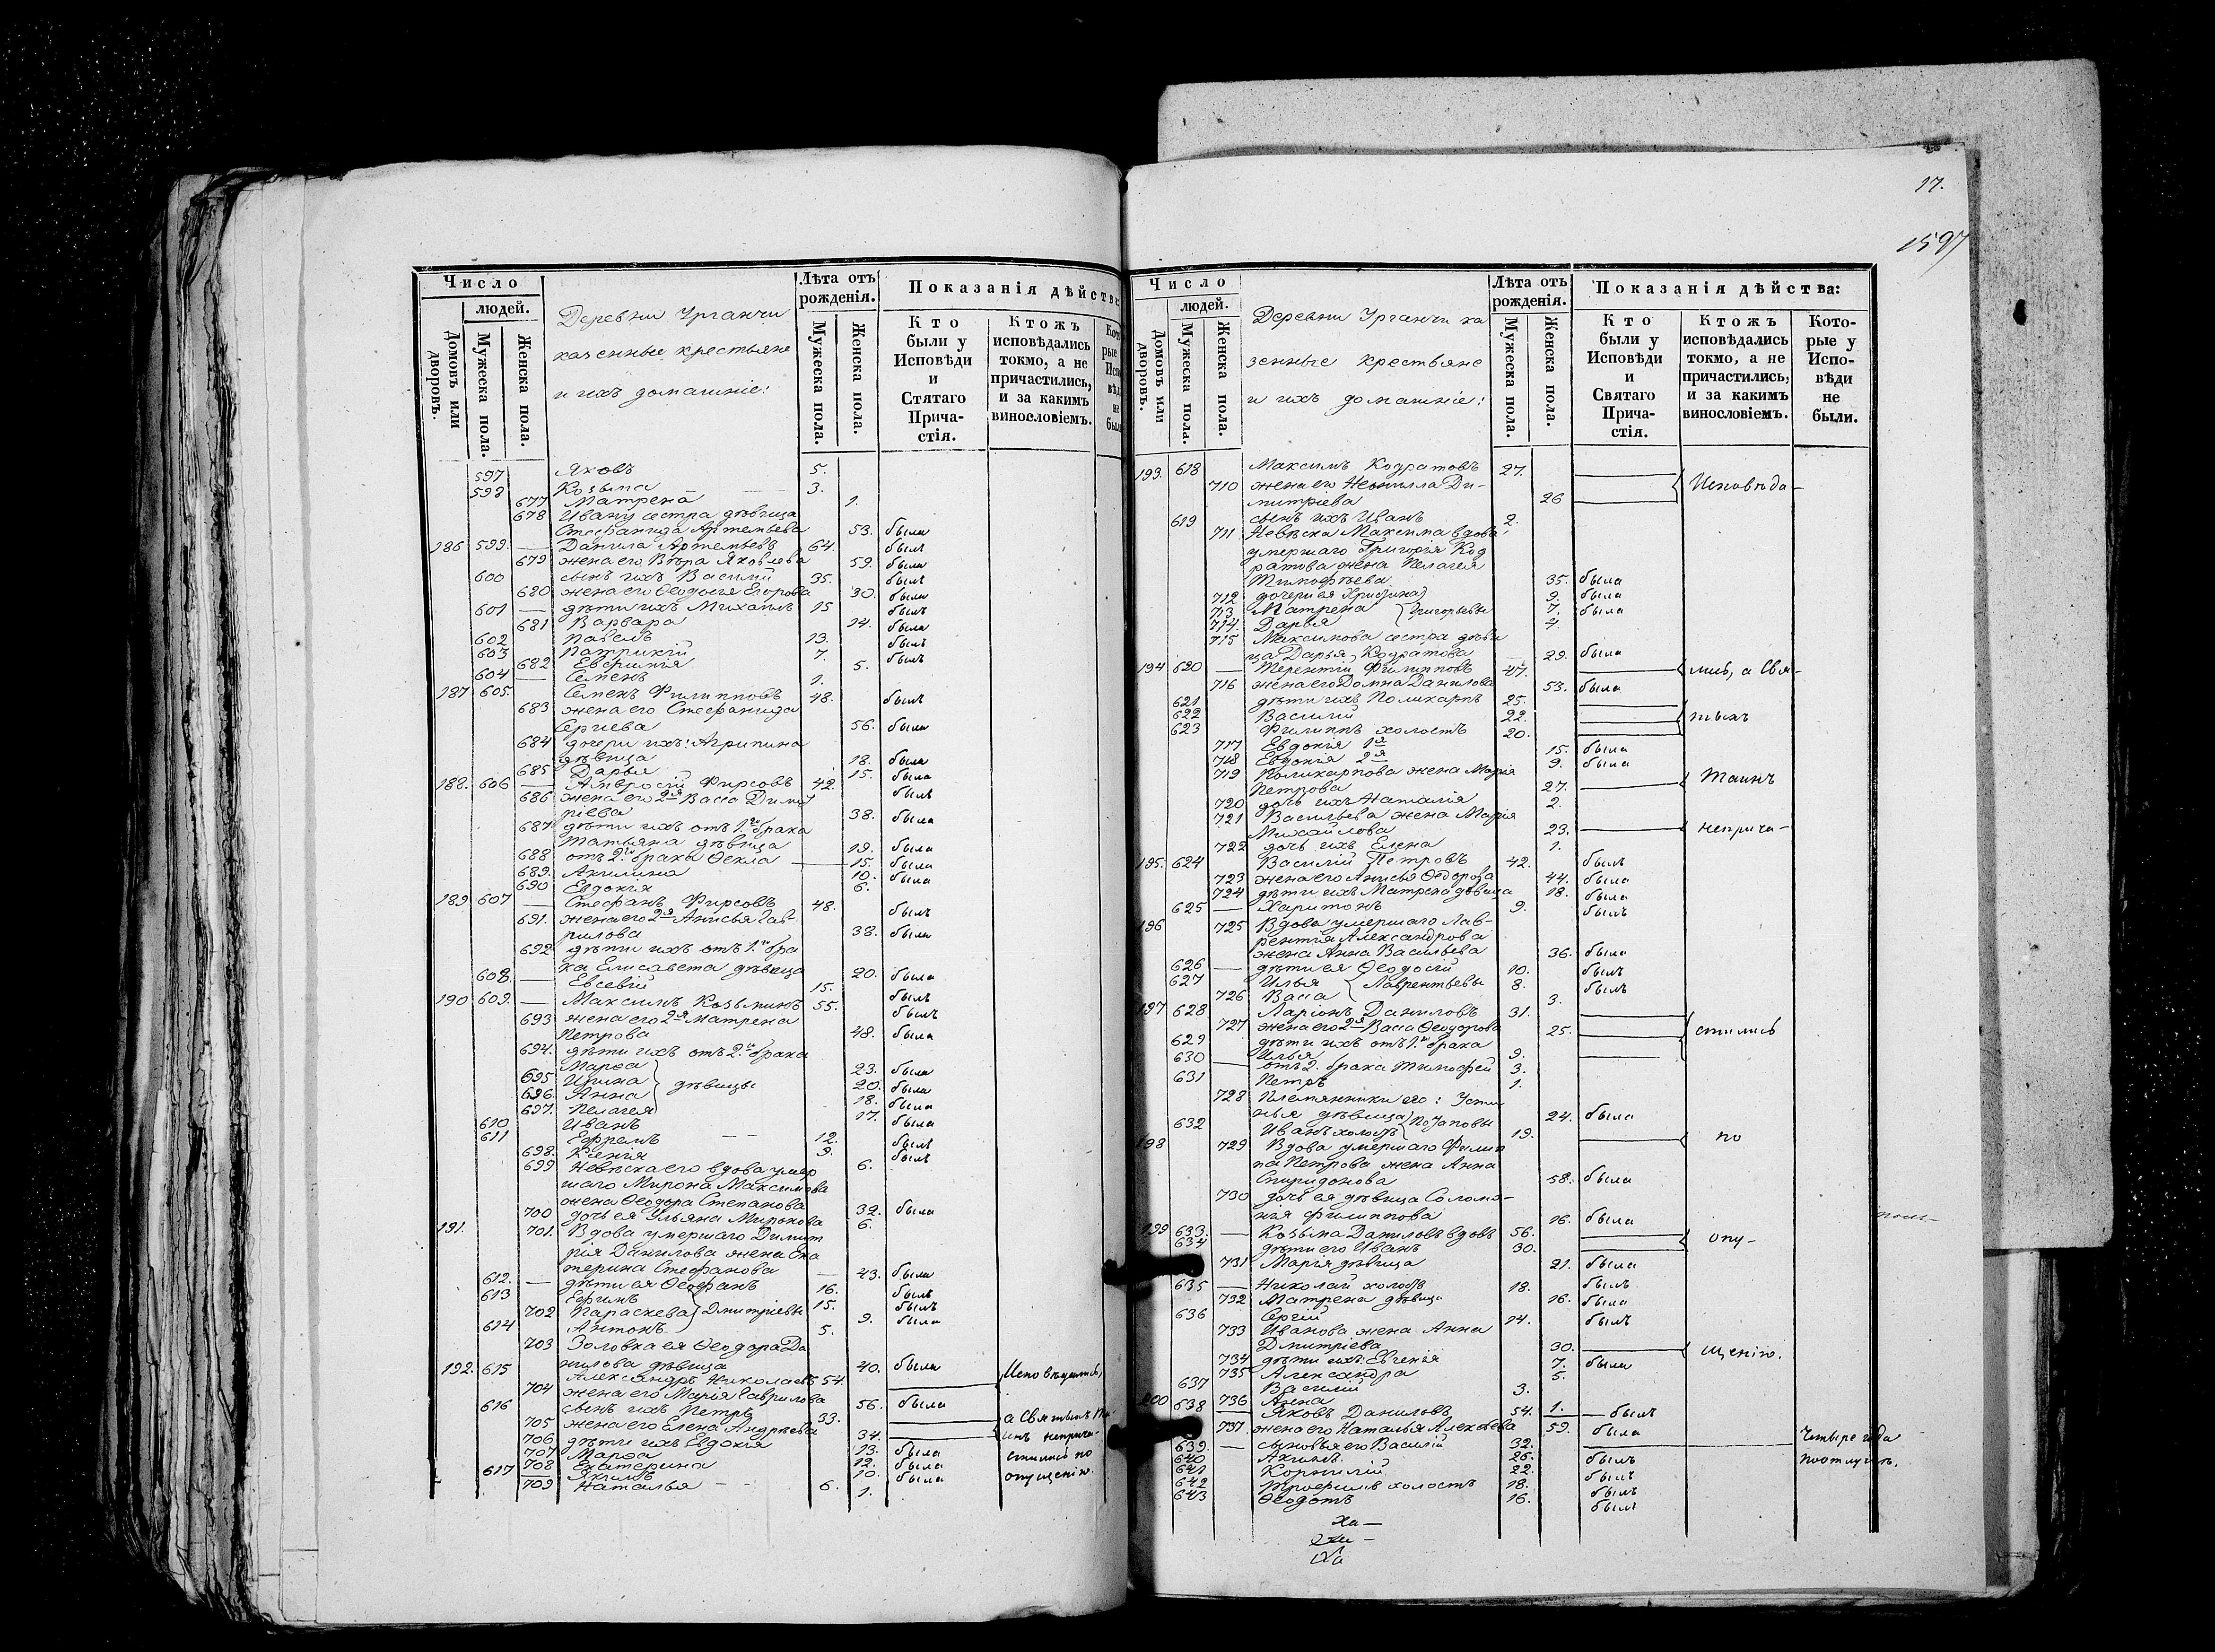 Число
людей.
Домовъ или дворовъ.
Мужеска пола.
Женска пола.
Деревни Урганчи
казенные крестьяне
и ихъ домашніе:
Лѣта отъ
рожденія.
Мужеска пола.
Женска пола.
Показанія дѣйств
Кто
были у
Исповѣди
и
Стятаго
Прича-
стія.
Ктожъ
исповѣдались
токмо, а не
причастились,
и за какимъ
винословіемъ.
597 Яковъ 5.
598 Козьма 3.
677 Матрена 1.
678 Ивану сестра дѣвица
Стефанида Артемьева 53. была
186 599. Данила Артемьевъ 64. былъ
679 жена его Вѣра Яковлева 59. была
600 сынъ ихъ Василій 35. былъ
680 жена его Ѳеодосія Егорова 30. была
601 дѣти ихъ Михаилъ 15 былъ
681 Варвара 14. была
602 Павелъ 13. былъ
603 Патрикій 7. былъ
682 Евфимія 5.
604 Семенъ 1.
187 605. Семенъ Филипповъ 48. былъ
683 жена его Стефанида
Сергиева 56. была
684 дчери ихъ: Агрипина
дѣвица 18. была
685 Дарья 15. была
188. 606 Амвросій Фирсовъ 42. былъ
686 жена его 2я Васса Димит
ріева 38. была
687 дѣти ихъ отъ 1.го брака
Татьяна дѣвица 19. была
688 отъ 2.го брака Ѳекла 15. была
689. Акилина 10. была
690 Евдокія 6.
189 607 Стефанъ Фирсовъ 48. былъ
691. жена его 2я Анисья Гав-
рилова 38. была
692 дѣти ихъ отъ 1.го бра
ка Елисавета дѣвица 20. была
608. Евсевій 15. былъ
190 609. Максимъ Козьминъ 55. былъ
693 жена его 2я Матрена
Петрова 48. была
694. дѣти ихъ отъ 2.го брака
Марѳа 23. была
695 Ирина дѣвицы 20. была
696. Анна 18. была
697. Пелагея 17. была
610 Иванъ
611 Ефремъ 12. былъ
698. Ксенія 9. былъ
699 Невѣска его вдова умер
шаго Мирона Максимова 6.
жена Ѳеодора Степанова 32. была
700 дочь ея Ульяна Миронова 6.
191. 701. Вдова умершаго Димит
рія Данилова жена Ека
терина Стефанова 43. была
612. дѣти ея Ѳеофанъ 16. былъ
613 Ефимъ 15. былъ
702 Параскева Дмитріевы 9. была
614 Антонъ 5.
703 Золовка ея Ѳеодора Да
нилова дѣвица 40. была
192. 615 Александръ Николаевъ 54. Исповѣдались,
704 жена его Марія Гаврилова 56. была
616 сынъ ихъ Петръ 33. а Святыхъ Та-
705 жена его Елена Андреева 34. инъ неприча-
706 дѣти ихъ Евдокія 13. была стились по
707 Марѳа 12. была опущенію.
708 Екатерина 10. была
617 Якимъ 6.
709 Наталья 1.
17.
1597
Число
людей.
Домовъ или дворовъ.
Мужеска пола.
Женска пола.
Деревни Урганчи ка
зенные крестьяне
и ихъ домашніе:
Лѣта отъ
рожденія.
Мужеска пола.
Женска пола.
Показанія дѣйства:
Кто
были у
Исповѣди
и
Святаго
Прича-
стія.
Ктожъ
исповѣдались
токмо, а не
причастились,
и за какимъ
винословіемъ.
Кото-
рые у
Испо-
вѣди
не
были.
193. 618 Максимъ Кодратовъ 27. Исповѣда-
710 жена его Неонилла Ди-
митріева 26
619 сынъ ихъ Иванъ 2.
711 Невѣска Максима вдова,
умершаго Григорія Код
ратова жена Пелагея
Тимофѣева 35. была
712 дочери ея Христина 9. была
713 Матрена Григорьевы 7. была
714. Дарья 4.
715 Максимова сестра дѣви
ца Дарья Кодратова 29. была
194 620 Терентій Филипповъ 47. лись, а Свя-
716 жена его Домна Данилова 53. была
621 дѣти ихъ Поликарпъ 25.
622 Василій 22. тыхъ
623 Филиппъ холостъ 20.
717 Евдокія 1я 15. была
718 Евдокія 2я 9. была
719 Поликарпова жена Марія
Петрова 27. Таинъ
720 дочь ихъ Наталія 2.
721 Васильева жена Марія
Михайлова 23. неприча-
722 дочь ихъ Елена 1.
195. 624 Василій Петровъ 42. былъ
723 жена его Анисья Ѳедорова 44. была
724 дѣти ихъ Матрена дѣвица 18. была
625 Харитонъ 9. былъ
196 725 Вдова умершаго Лав-
рентія Александрова
жена Анна Васильева 36. была
626 дѣти ея Ѳеодосій 10. былъ
627 Илья Лаврентьевы 8. былъ
726 Васса 3.
197 628 Ларіонъ Даниловъ 31.
727 жена его 2я Васса Ѳеодорова 25. стились
629 дѣти ихъ отъ 1.го брака
630 Илья 9.
отъ 2. брака Тимофей 3.
631 Петръ 1.
728 Племянники его: Усти
нья дѣвица Потаповы 24. была
632 Иванъ холостъ 19.
198 729 Вдова умершаго Филип по
па Петрова жена Анна
Спиридонова 58. была
730 дочь ея дѣвица Соломо-
нія Филиппова 16. была
199 633. Козьма Даниловъ вдовъ 56.
634 дѣти его Иванъ 30. опу-
731 Марія дѣвица 21. была
635 Николай холостъ 18. былъ
732 Матрена дѣвица 16. была
636 Сергій 14. былъ
733 Иванова жена Анна
Дмитріева 30. щенію.
734 дѣти ихъ: Евгенія 7. была
735 Александра 5.
637 Василій 3.
200 736 Анна 1.
638 Яковъ Даниловъ 54. былъ
737 жена его Наталья Алексѣева 59. была
639. сыновья его Василій 32. Четыре года
640 Акимъ 26. былъ
641 Корнилій 22. былъ
642 Трофимъ холостъ 18. былъ
643 Ѳеодотъ 16. былъ
Ха-